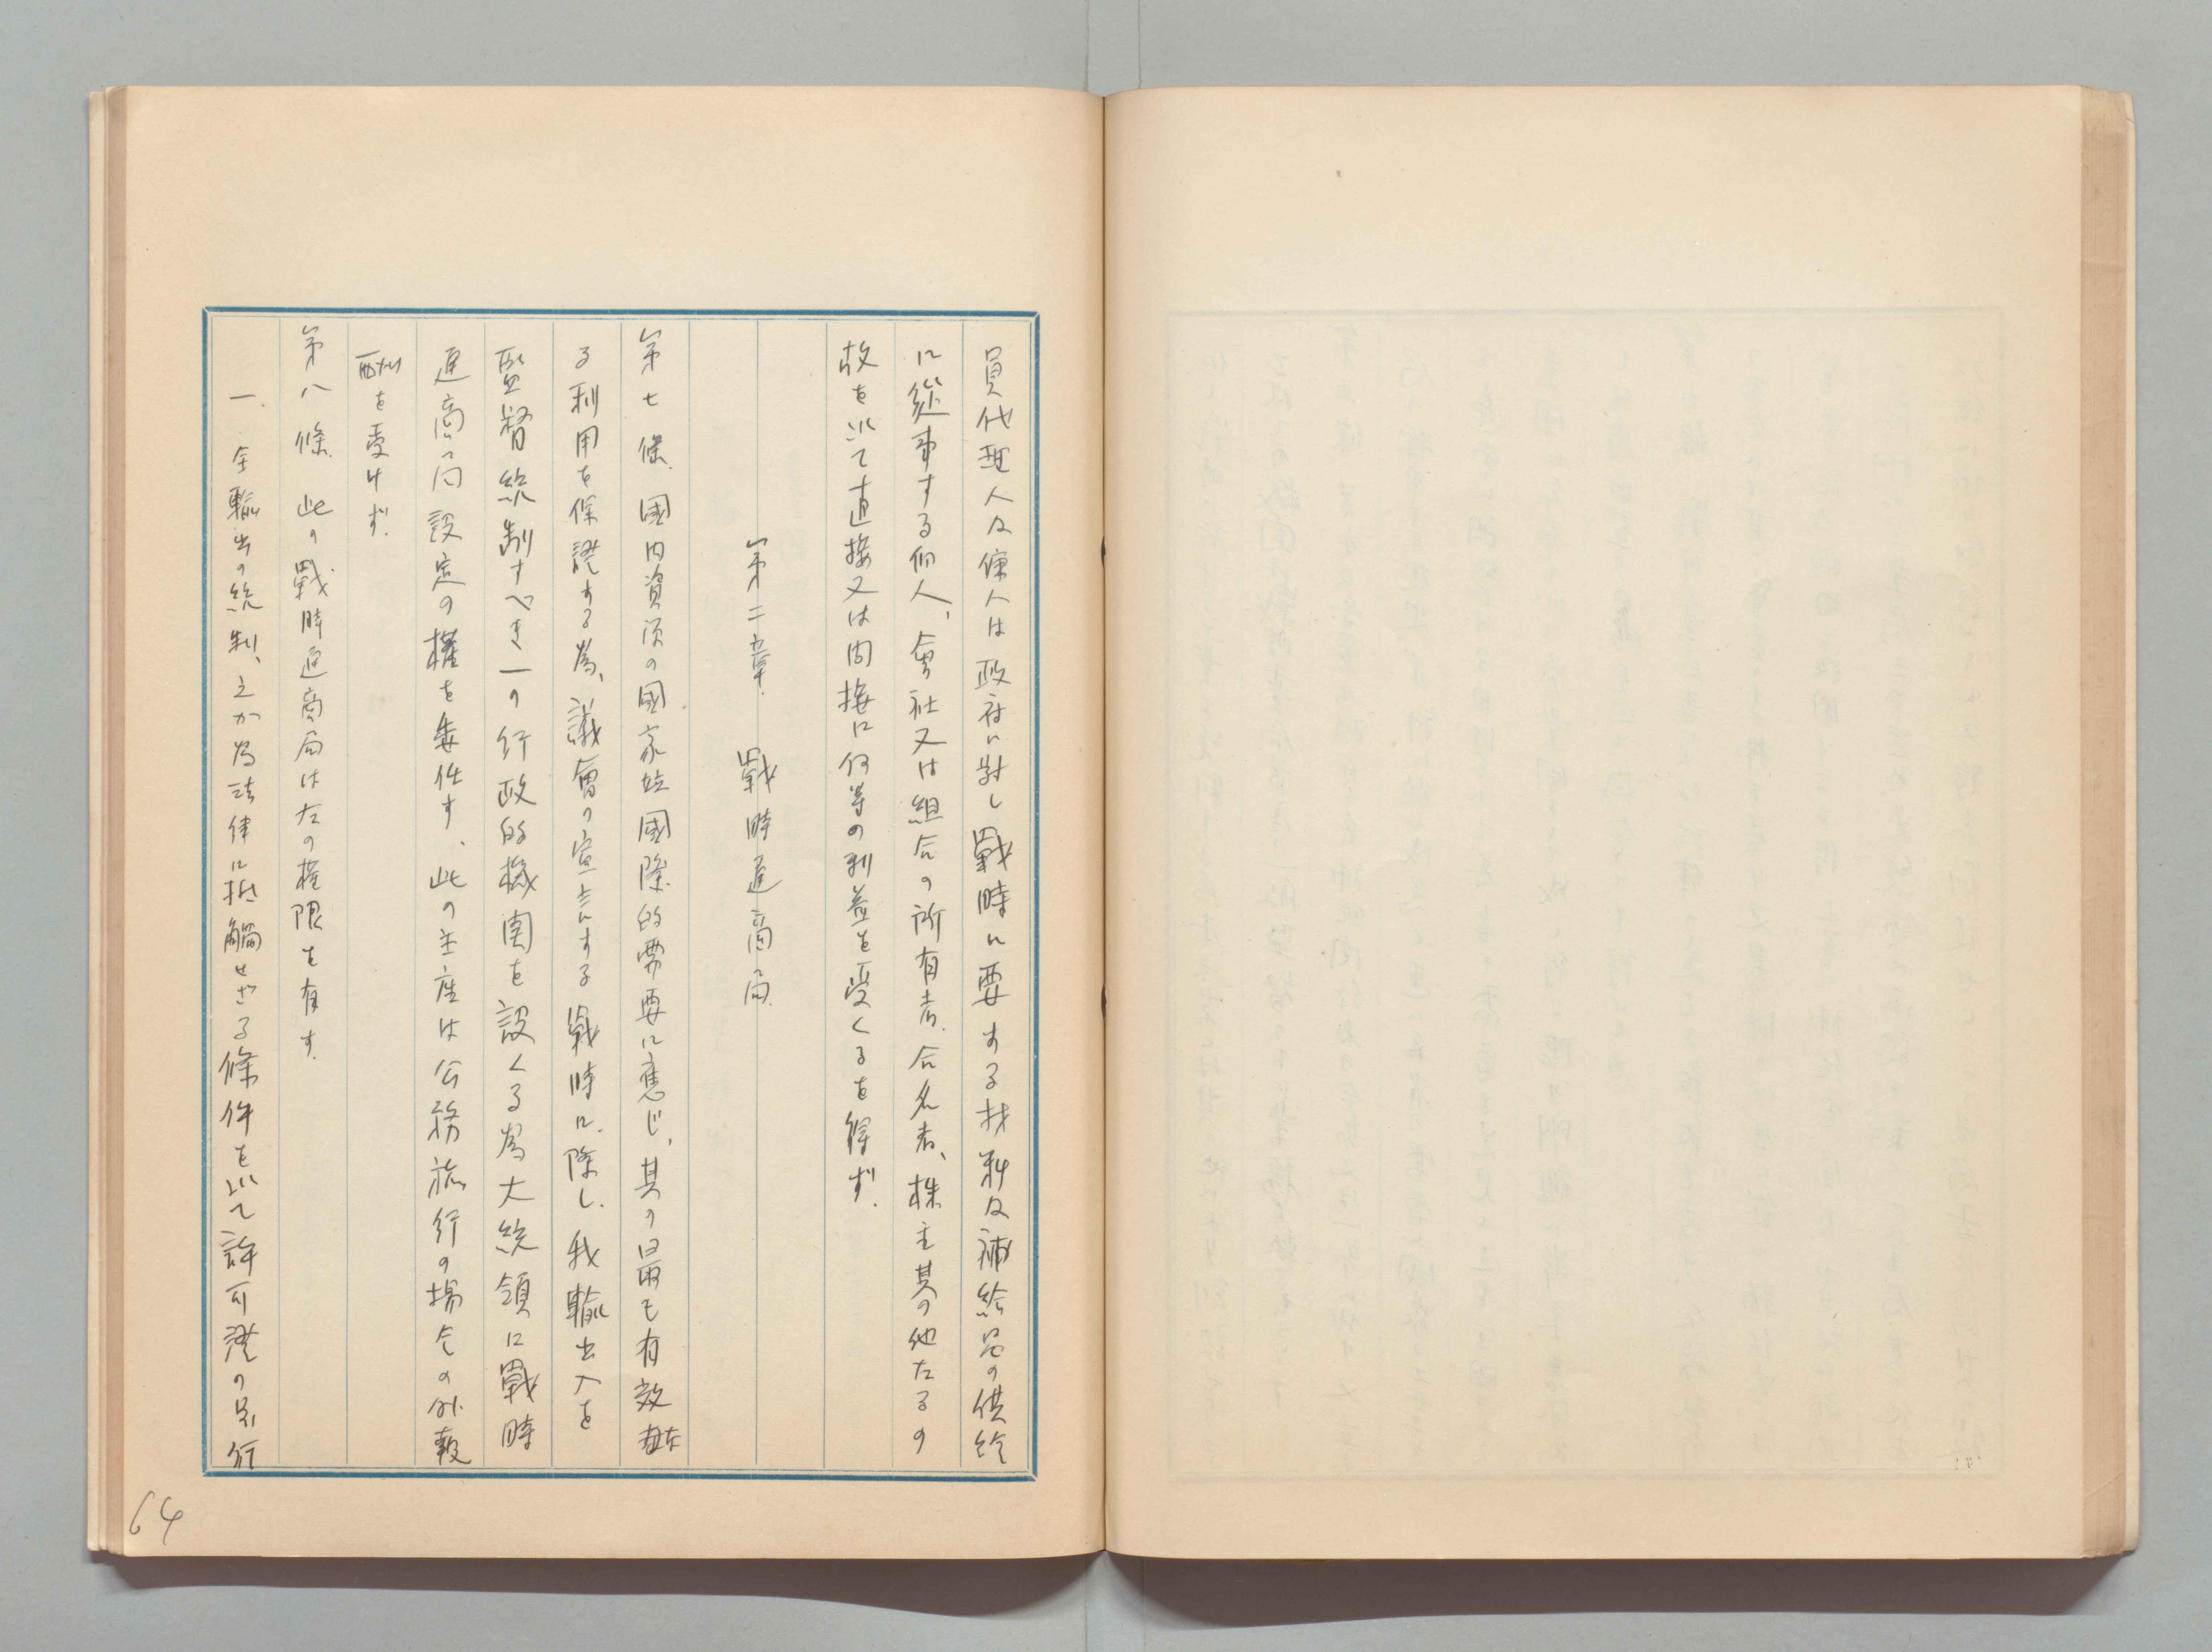 員代理人及傭人は政府に對し戰時に要する材料及補給品の供給
に從事する個人、會社又は組合の所有者、合名者、株主其の他たるの
故を以て直接又は間接に何等の利益を受くるを得ず.
第二章. 戰時通商局.
第七條. 國内資源の國家並國際的需要に應じ、其の最も有效
る利用を保證する為、議會の宣言する戰時に.際し.我輸出入を
監督統制すべき一の行政的機関を設くる為大統領に戰時
通商局設定の權を委任す、此の主座は公務旅行の場合の外報
酬を受けず.
第八條. 此の戰時通商局は左の權限を有す.
一. 全輸出の統制、之か為法律に抵觸せざる條件を以て許可證の
64